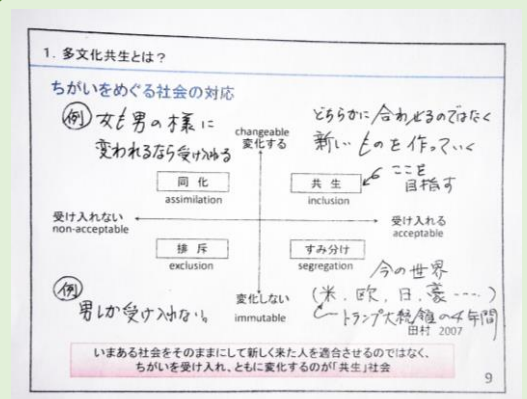 1. 多文化共生とは？
ちがいをめぐる社会の対応
例 女も男の様に
変われるなら受け入れる
どちらかに合わせるのではなく
新しいものを作っていく
changeable
変化する
同 化
assimilation
共 生
inclusion
ここを
目指す
受け入れない
non-acceptable
受け入れる
acceptable
排 斥
exclusion
すみ分け
segregation
今の世界
(米、欧、日、豪……)
例
男しか受け入れない。
変化しない
immutable
トランプ大統領の4年間
田村 2007
いまある社会をそのままにして新しく来た人を適合させるのではなく、
ちがいを受け入れ、ともに変化するのが「共生」社会
9